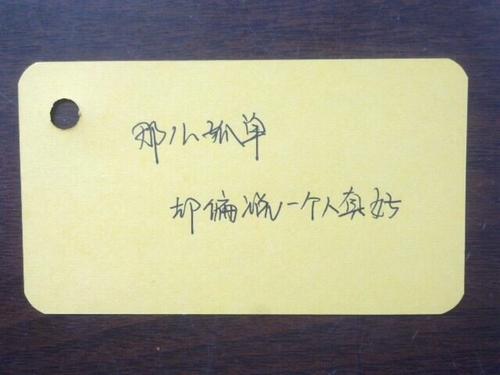 那么孤单
却偏说一个人真好